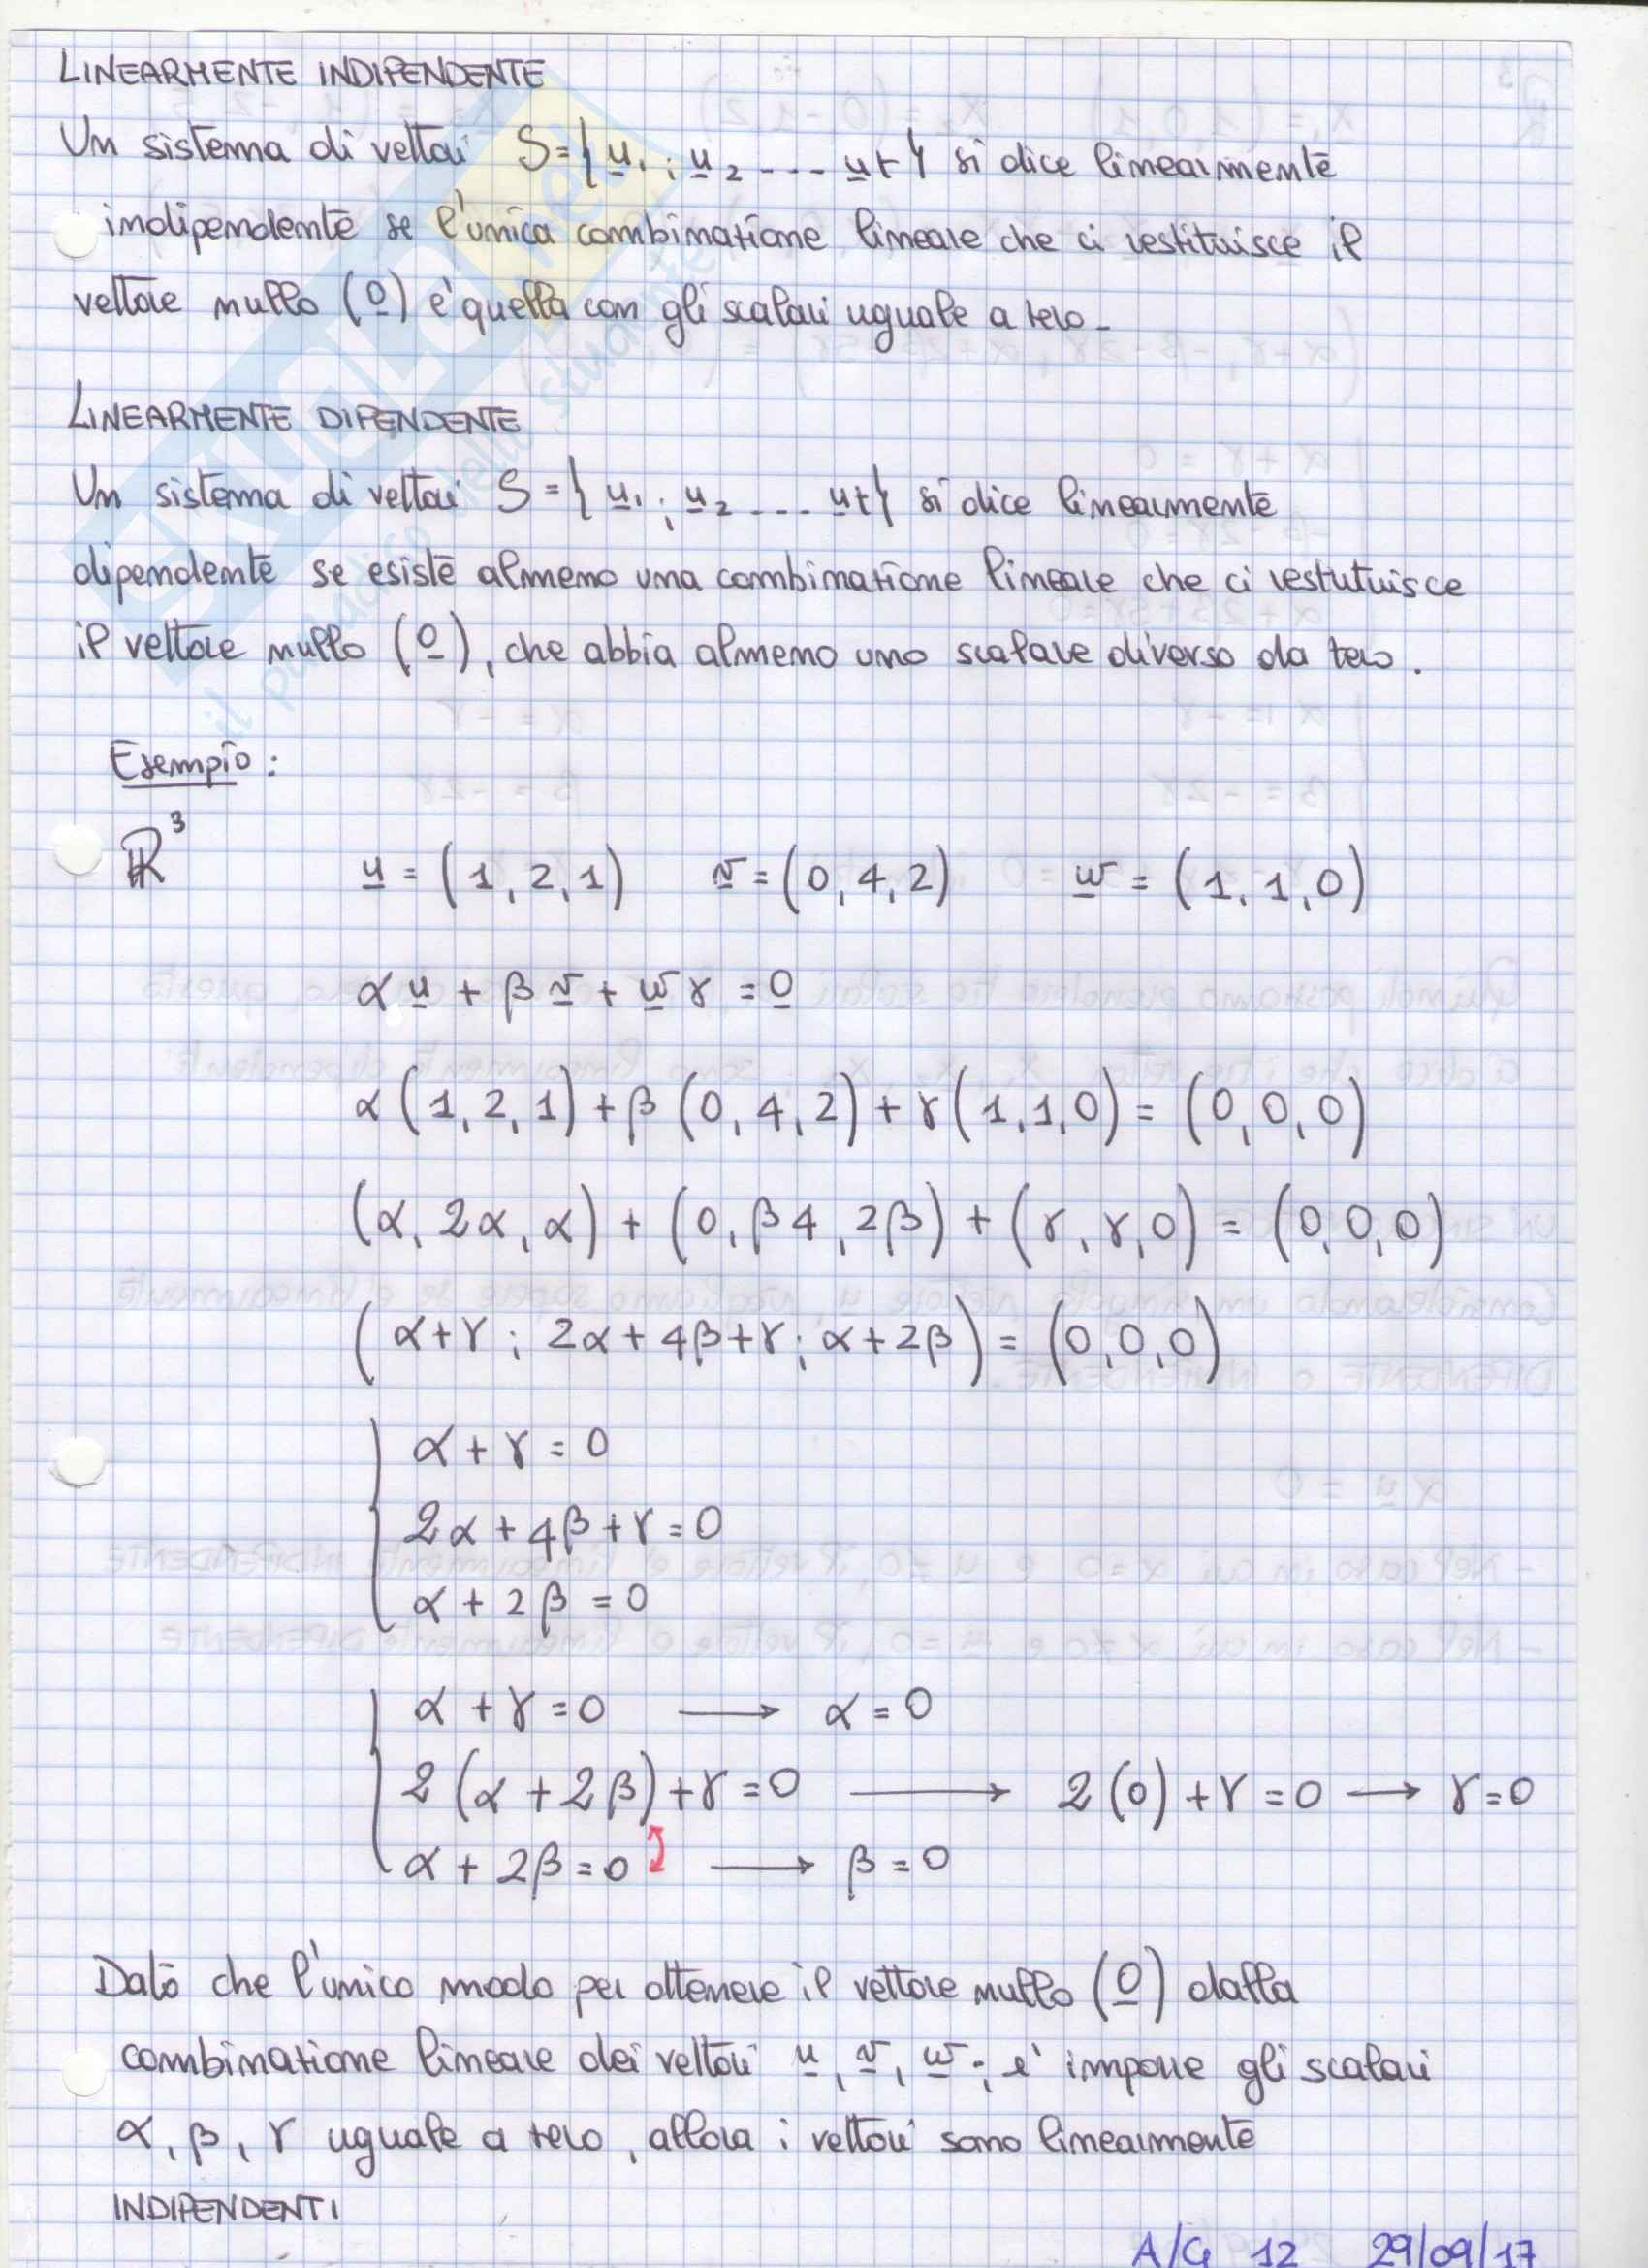 LINEARMENTE INDIPENDENTE
Un sistema di vettori S={u₁; u₂ ---- ut} si dice linearmente
indipendente se l'unica combinazione lineare che ci restituisce il
vettore nullo (0) e' quella con gli scalari uguale a zero-
LINEARMENTE DIPENDENTE
Un sistema di vettori S={u₁; u₂ ---- ut} si dice linearmente
dipendente se esiste almeno una combinazione lineare che ci restutuisce
il vettore nullo (0), che abbia almeno uno scalare diverso da zero.
Esempio:
ℝ³ u = (1, 2, 1) v = (0, 4, 2) w = (1, 1, 0)
αu + βv + wγ = 0
α(1, 2, 1) + β(0, 4, 2) + γ(1, 1, 0) = (0, 0, 0)
(α, 2α, α) + (0, β4, 2β) + (γ, γ, 0) = (0, 0, 0)
(α+γ; 2α+4β+γ; α+2β) = (0, 0, 0)
α + γ = 0
2α + 4β + γ = 0
α + 2β = 0
α + γ = 0 → α = 0
2(α + 2β) + γ = 0 → 2(0) + γ = 0 → γ = 0
α + 2β = 0 → β = 0
Dato che l'unico modo per ottenere il vettore nullo (0) dalla
combinazione lineare dei vettori u, v, w; e' imporre gli scalari
α, β, γ uguale a zero, allora i vettori sono linearmente
INDIPENDENTI
A/G 12 29/09/17